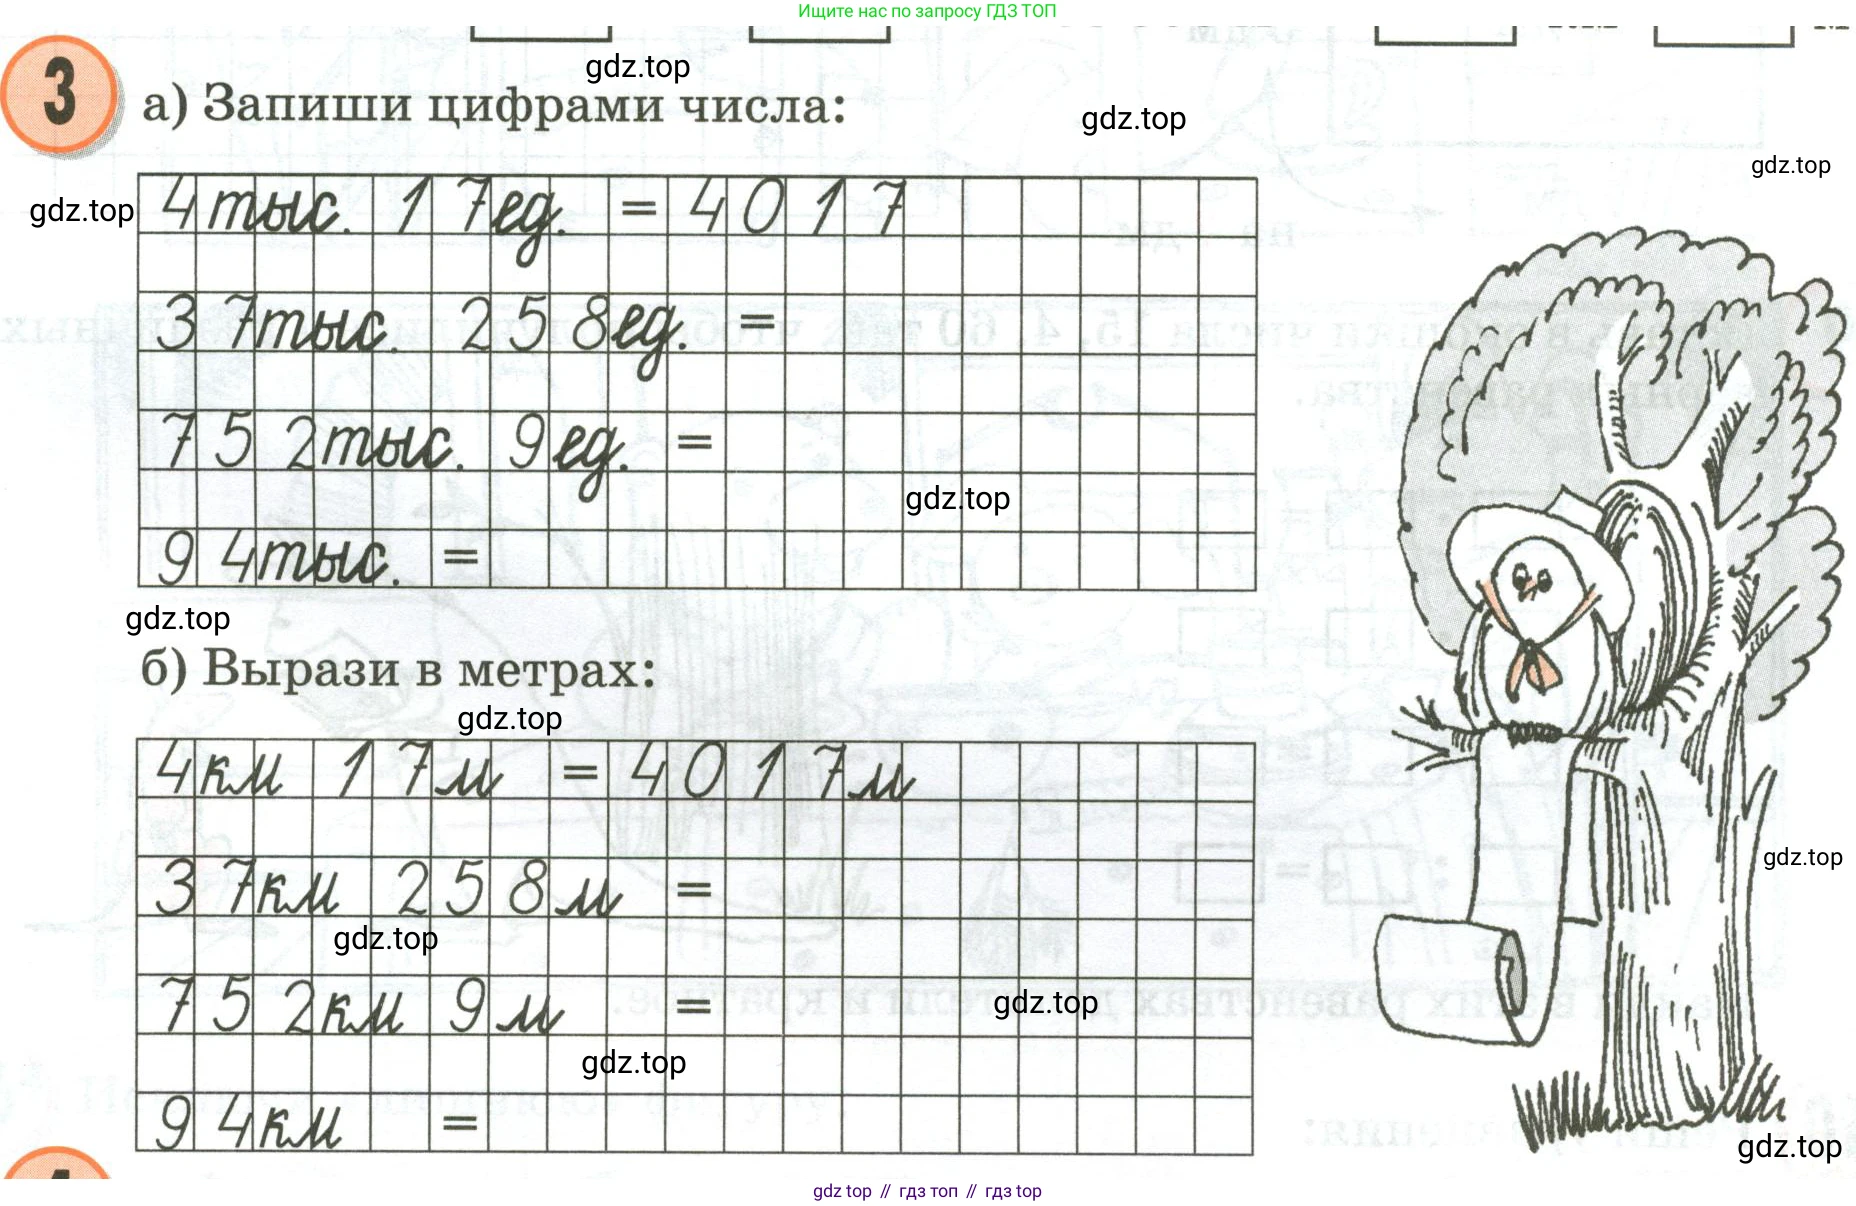 Ищите нас по запросу ГДЗ ТОП
gdz.top
3
а) Запиши цифрами числа:
gdz.top
gdz.top
gdz.top
4 тыс. 17 ед. = 4017
37 тыс. 258 ед. =
752 тыс. 9 ед. =
gdz.top
94 тыс. =
gdz.top
б) Вырази в метрах:
gdz.top
4 км 17 м = 4017 м
gdz.top
37 км 258 м =
gdz.top
752 км 9 м =
gdz.top
gdz.top
94 км =
gdz.top
gdz top // гдз топ // гдз top